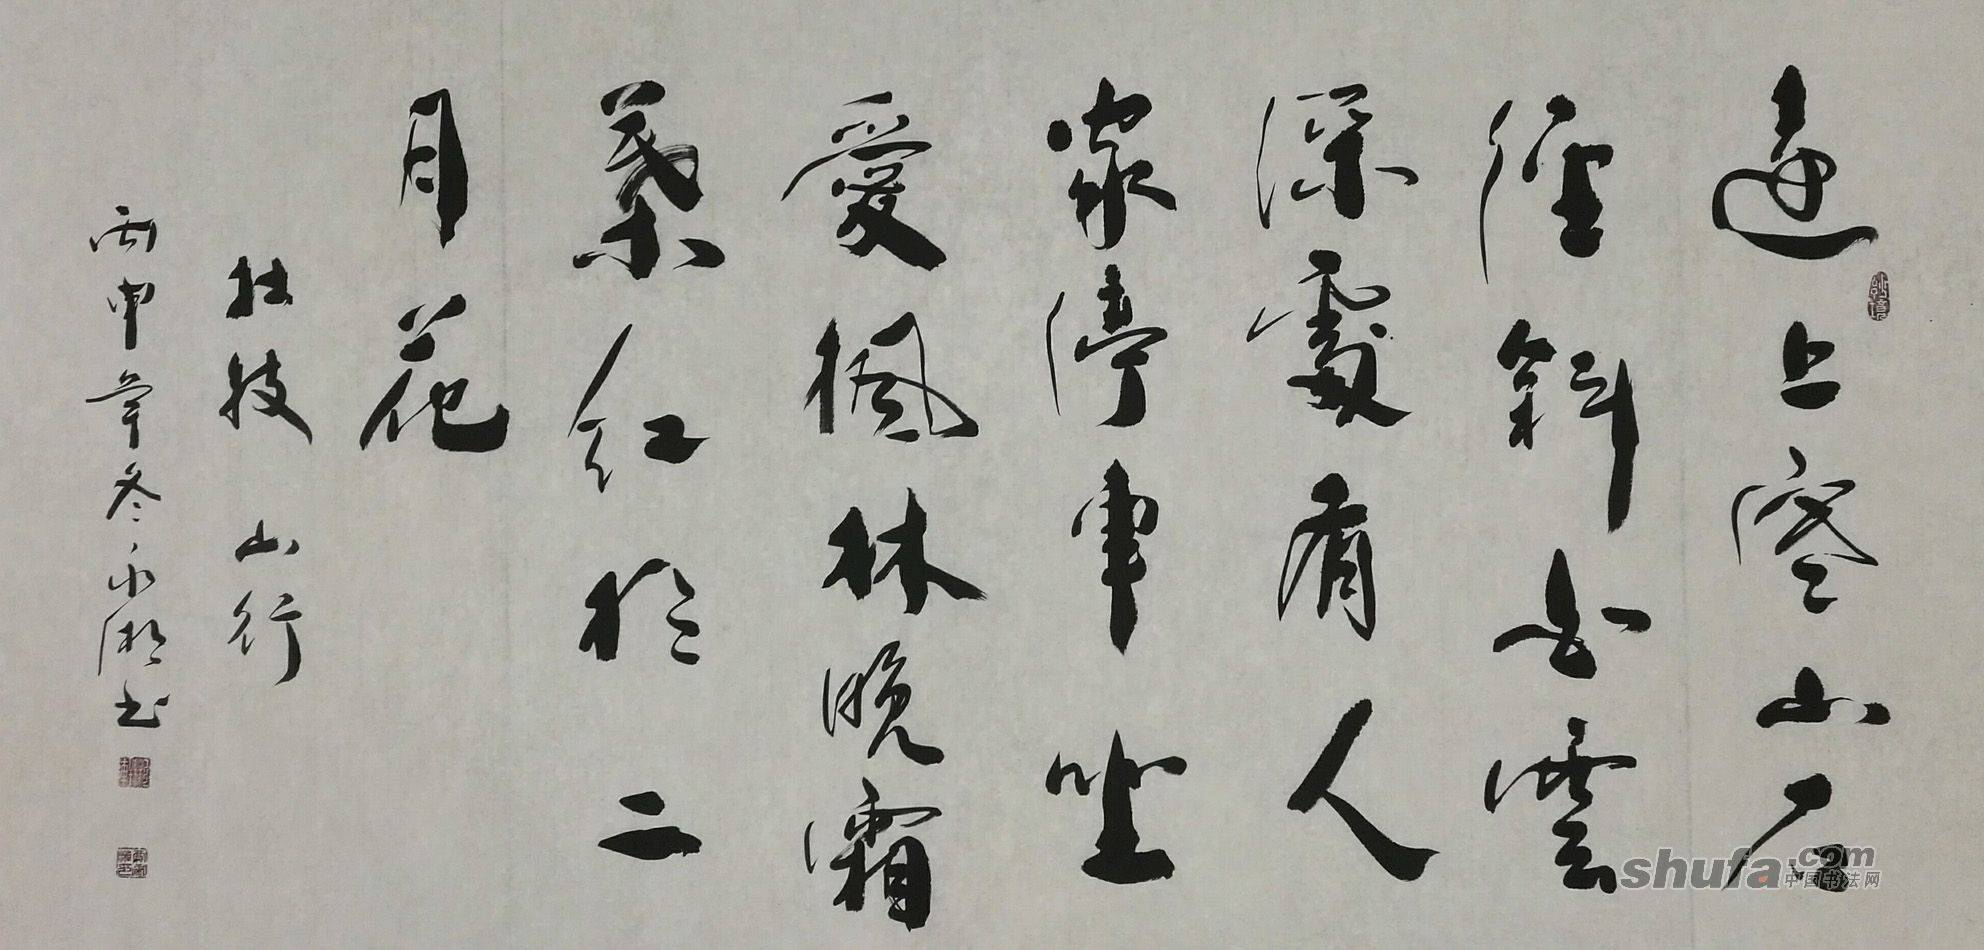 遠上寒山石
徑斜白雲
深處有人
家停車坐
愛楓林晚霜
葉紅於二
月花
杜牧 山行
丙申年冬永湘书
shufa.com
中国书法网